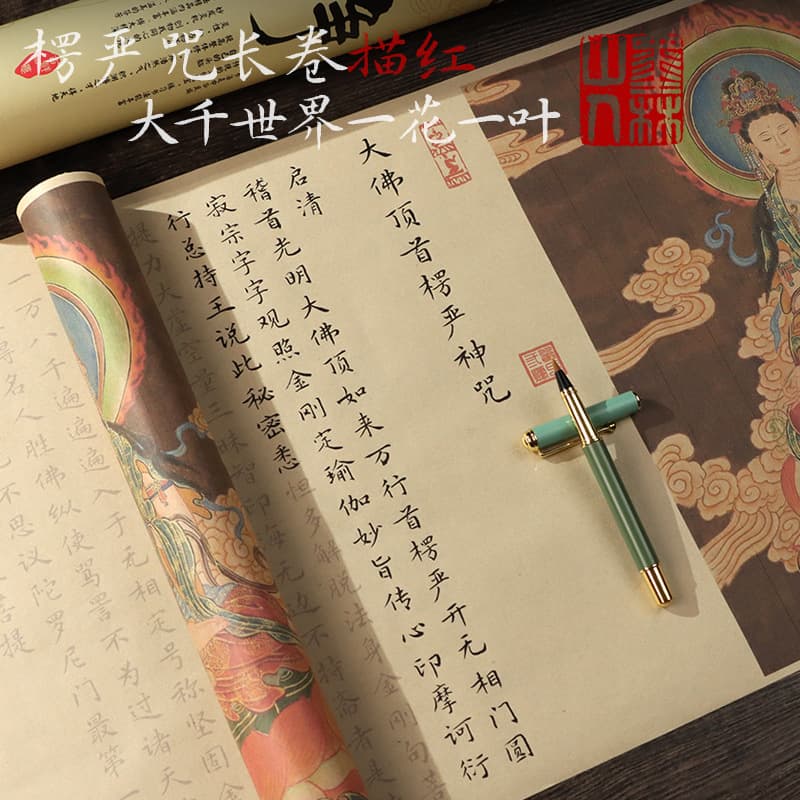 楞严咒长卷描红
大千世界一花一叶
墨林山人
大佛顶首楞严神咒
启清
稽首光明大佛顶如来万行首楞严开无相门圆
寂宗字字观照金刚定瑜伽妙旨传心印摩诃衍
行总持王说此秘密悉恒多解脱法身金刚句菩
提力大虚空量三昧智印海无边不持斋者是
一万八千遍遍遍入于无相定号称坚固
得名人胜佛纵使骂詈不为过诸天
不思议陀罗尼门最第一
菩提